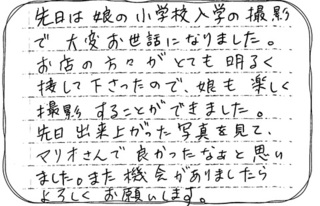 先日は娘の小学校入学の撮影
で大変お世話になりました。
お店の方々がとても明るく
接して下さったので、娘も楽しく
撮影することができました。
先日出来上がった写真を見て、
マリオさんで良かったなぁと思い
ました。また機会がありましたら
よろしくお願いします。